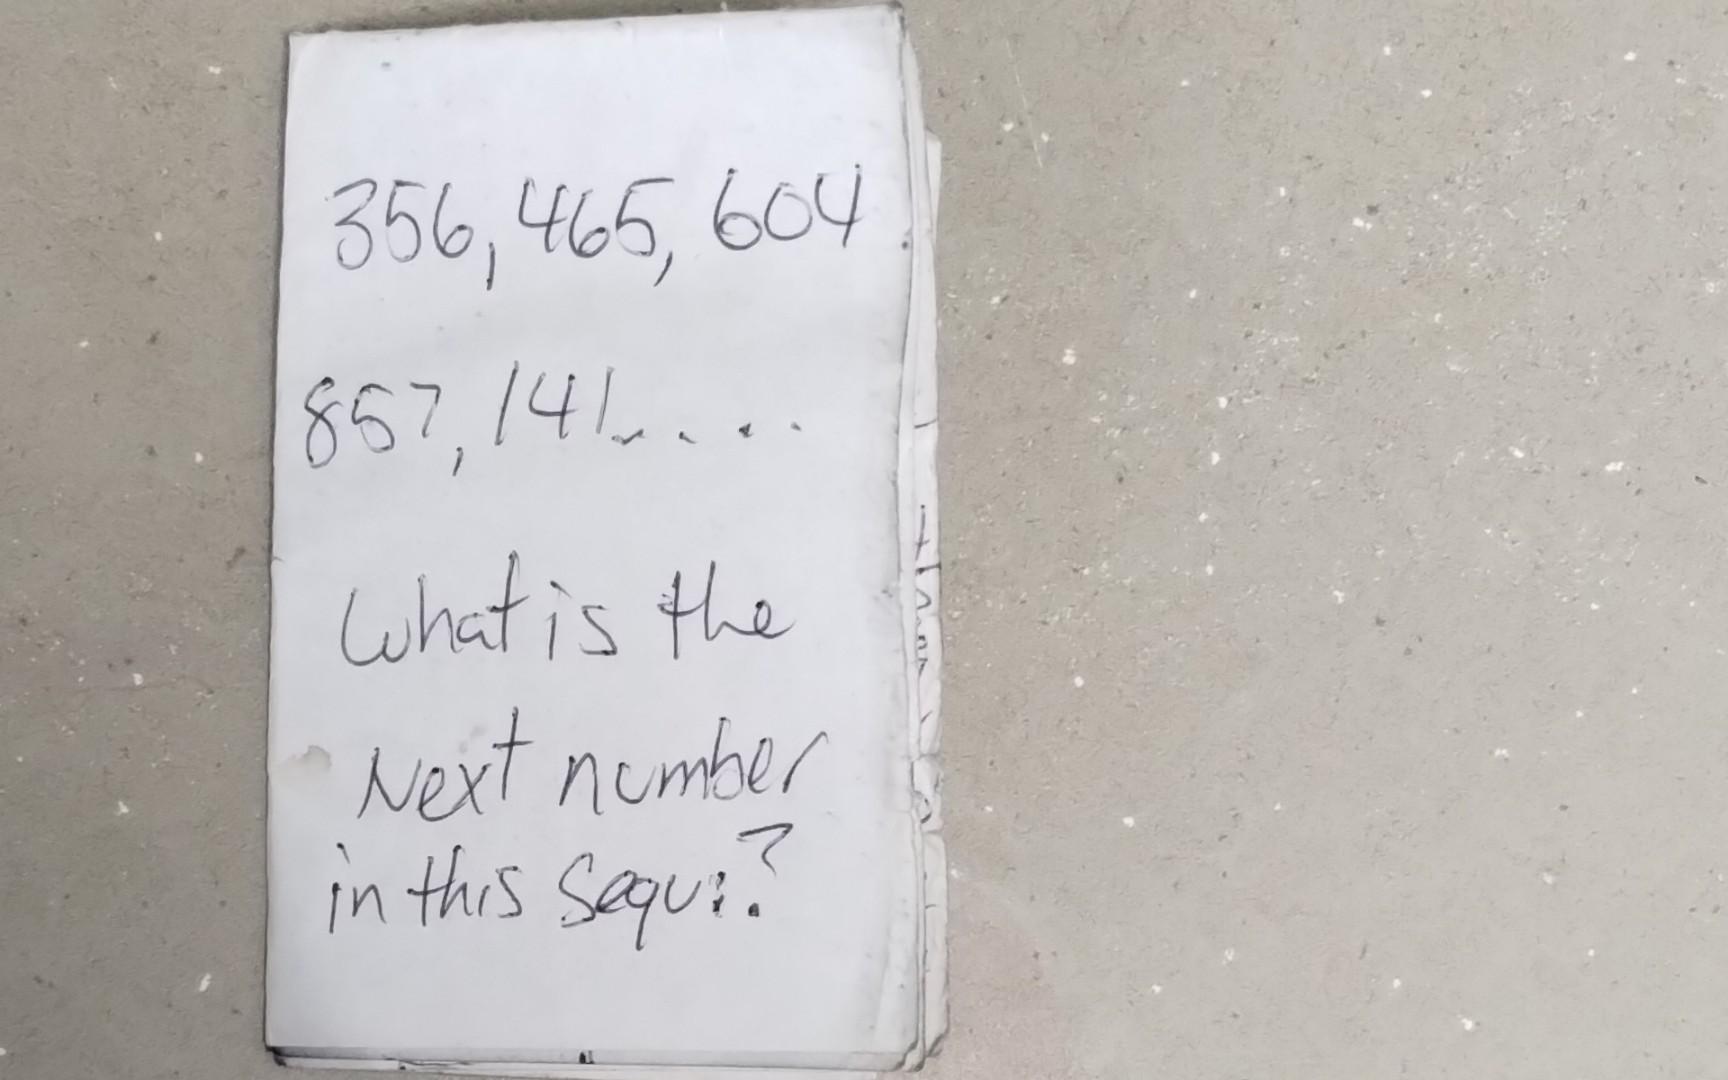 356, 465, 604
857, 141.....
What is the
Next number
in this sequ:?